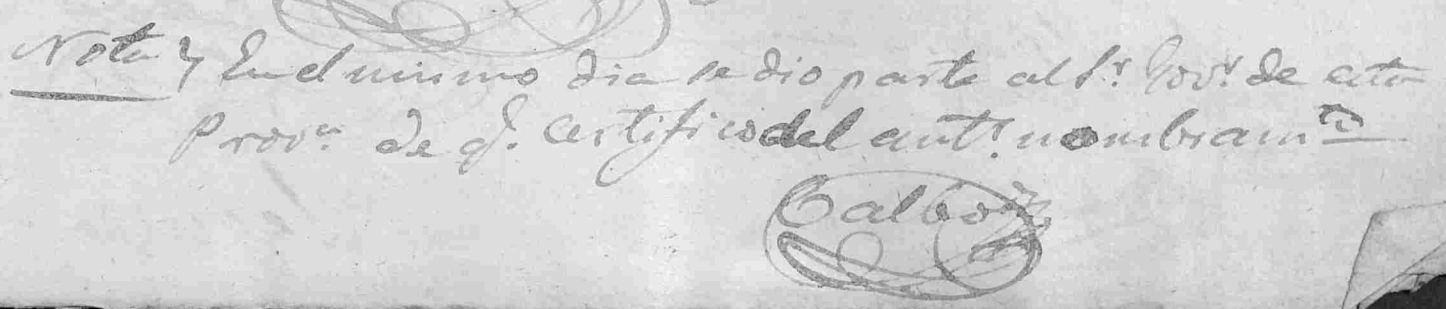 Nota } En el mismo dia se dio parte al Sr. Govr. de esta
Prova. de q. certifico del antr. nombramto
Calvo